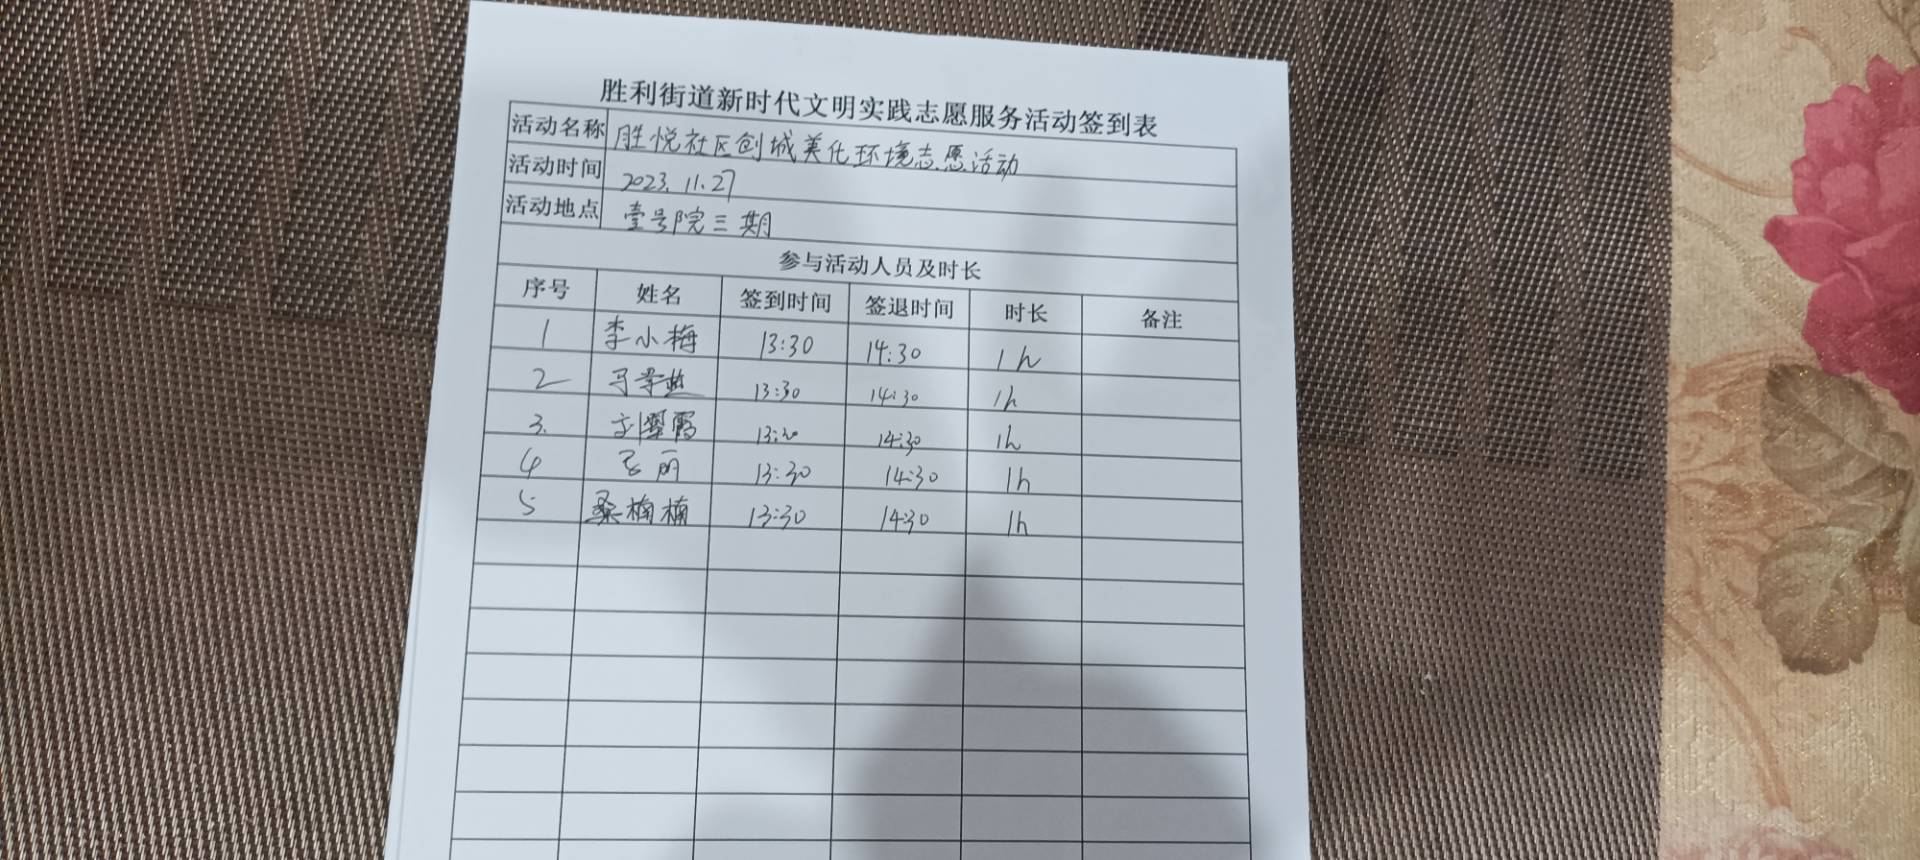 胜利街道新时代文明实践志愿服务活动签到表
活动名称 胜悦社区创城美化环境志愿活动
活动时间 2023.11.27
活动地点 壹号院三期
参与活动人员及时长
序号 姓名 签到时间 签退时间 时长 备注
1 李小梅 13:30 14:30 1h
2 13:30 14:30 1h
3. 13:30 14:30 1h
4 丽 13:30 14:30 1h
5 桑楠楠 13:30 14:30 1h